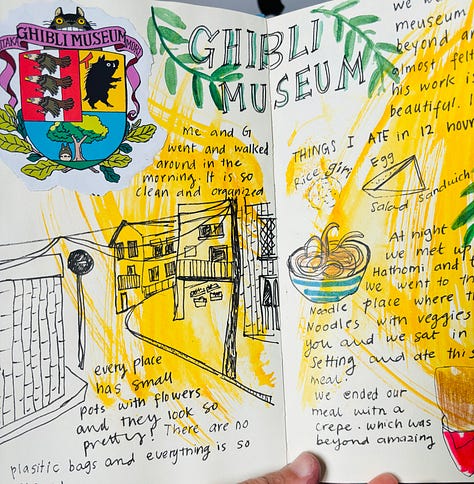 GHIBLI MUSEUM
MITAKA
MORI
GHIBLI
MUSEUM
me and G
went and walked
around in the
morning. It is so
clean and organized
every place
has small
pots with flowers
and they look so
pretty! There are no
plasitic bags and everything is so
we
meuseum
beyond
almost felt
his work
beautiful. I
THINGS I ATE in 12 hour
Rice
Egg
Salad Sandwich
At night
we met up
Hathomi and
we went to th
Noodle place where
Noodles with veggies
you and we sat in
Setting and ate this
meal.
we ended our
meal with a
crepe. which was
beyond amazing